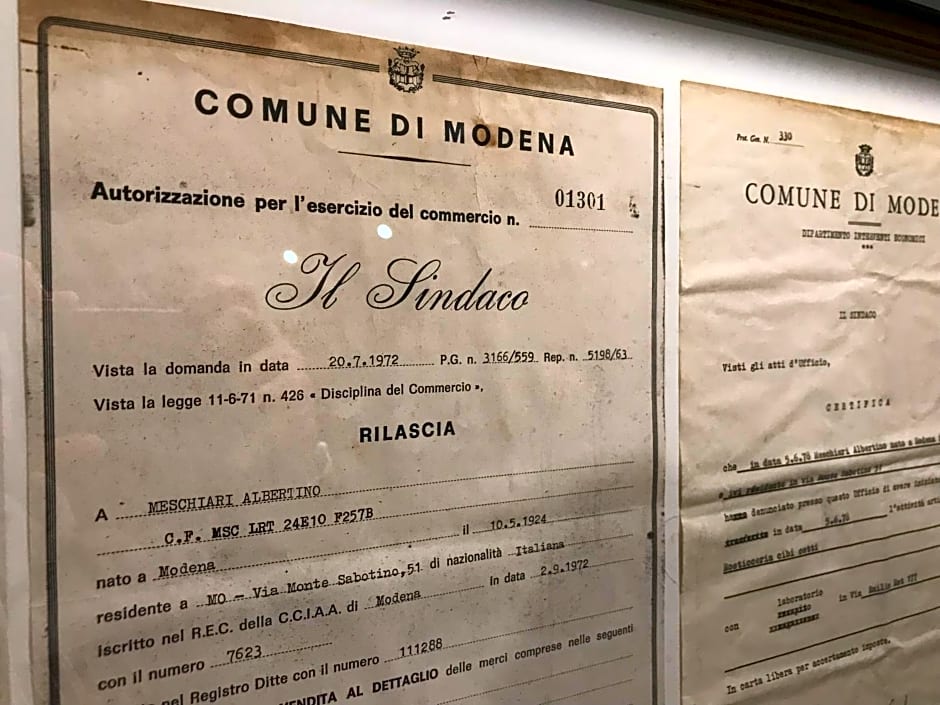 COMUNE DI MODENA
Autorizzazione per l'esercizio del commercio n. 01301
Il Sindaco
Vista la domanda in data 20.7.1972 P.G. n. 3166/559 Rep. n. 5198/63
Vista la legge 11-6-71 n. 426 « Disciplina del Commercio »,
RILASCIA
A MESCHIARI ALBERTINO
C.F. MSC LRT 24E10 F257B
nato a Modena il 10.5.1924
residente a MO - Via Monte Sabotino,51 di nazionalità Italiana
iscritto nel R.E.C. della C.C.I.A.A. di Modena In data 2.9.1972
con il numero 7623
nel Registro Ditte con il numero 111288
VENDITA AL DETTAGLIO delle merci comprese nelle seguenti
Prot. Gen. N. 330
COMUNE DI MODE
DIPARTIMENTO INTERVENTI ECONOMICI
***
IL SINDACO
Visti gli atti d'Ufficio,
CERTIFICA
che in data 5.6.78 Meschiari Albertino nato a Modena
e ivi residente in Via Monte Sabotino
denunciato presso questo Ufficio di avere
in data 5.6.78 l'attività
Rosticceria cibi cotti
con laboratorio in Via Emilia Est
In carta libera per accertamento imposte.